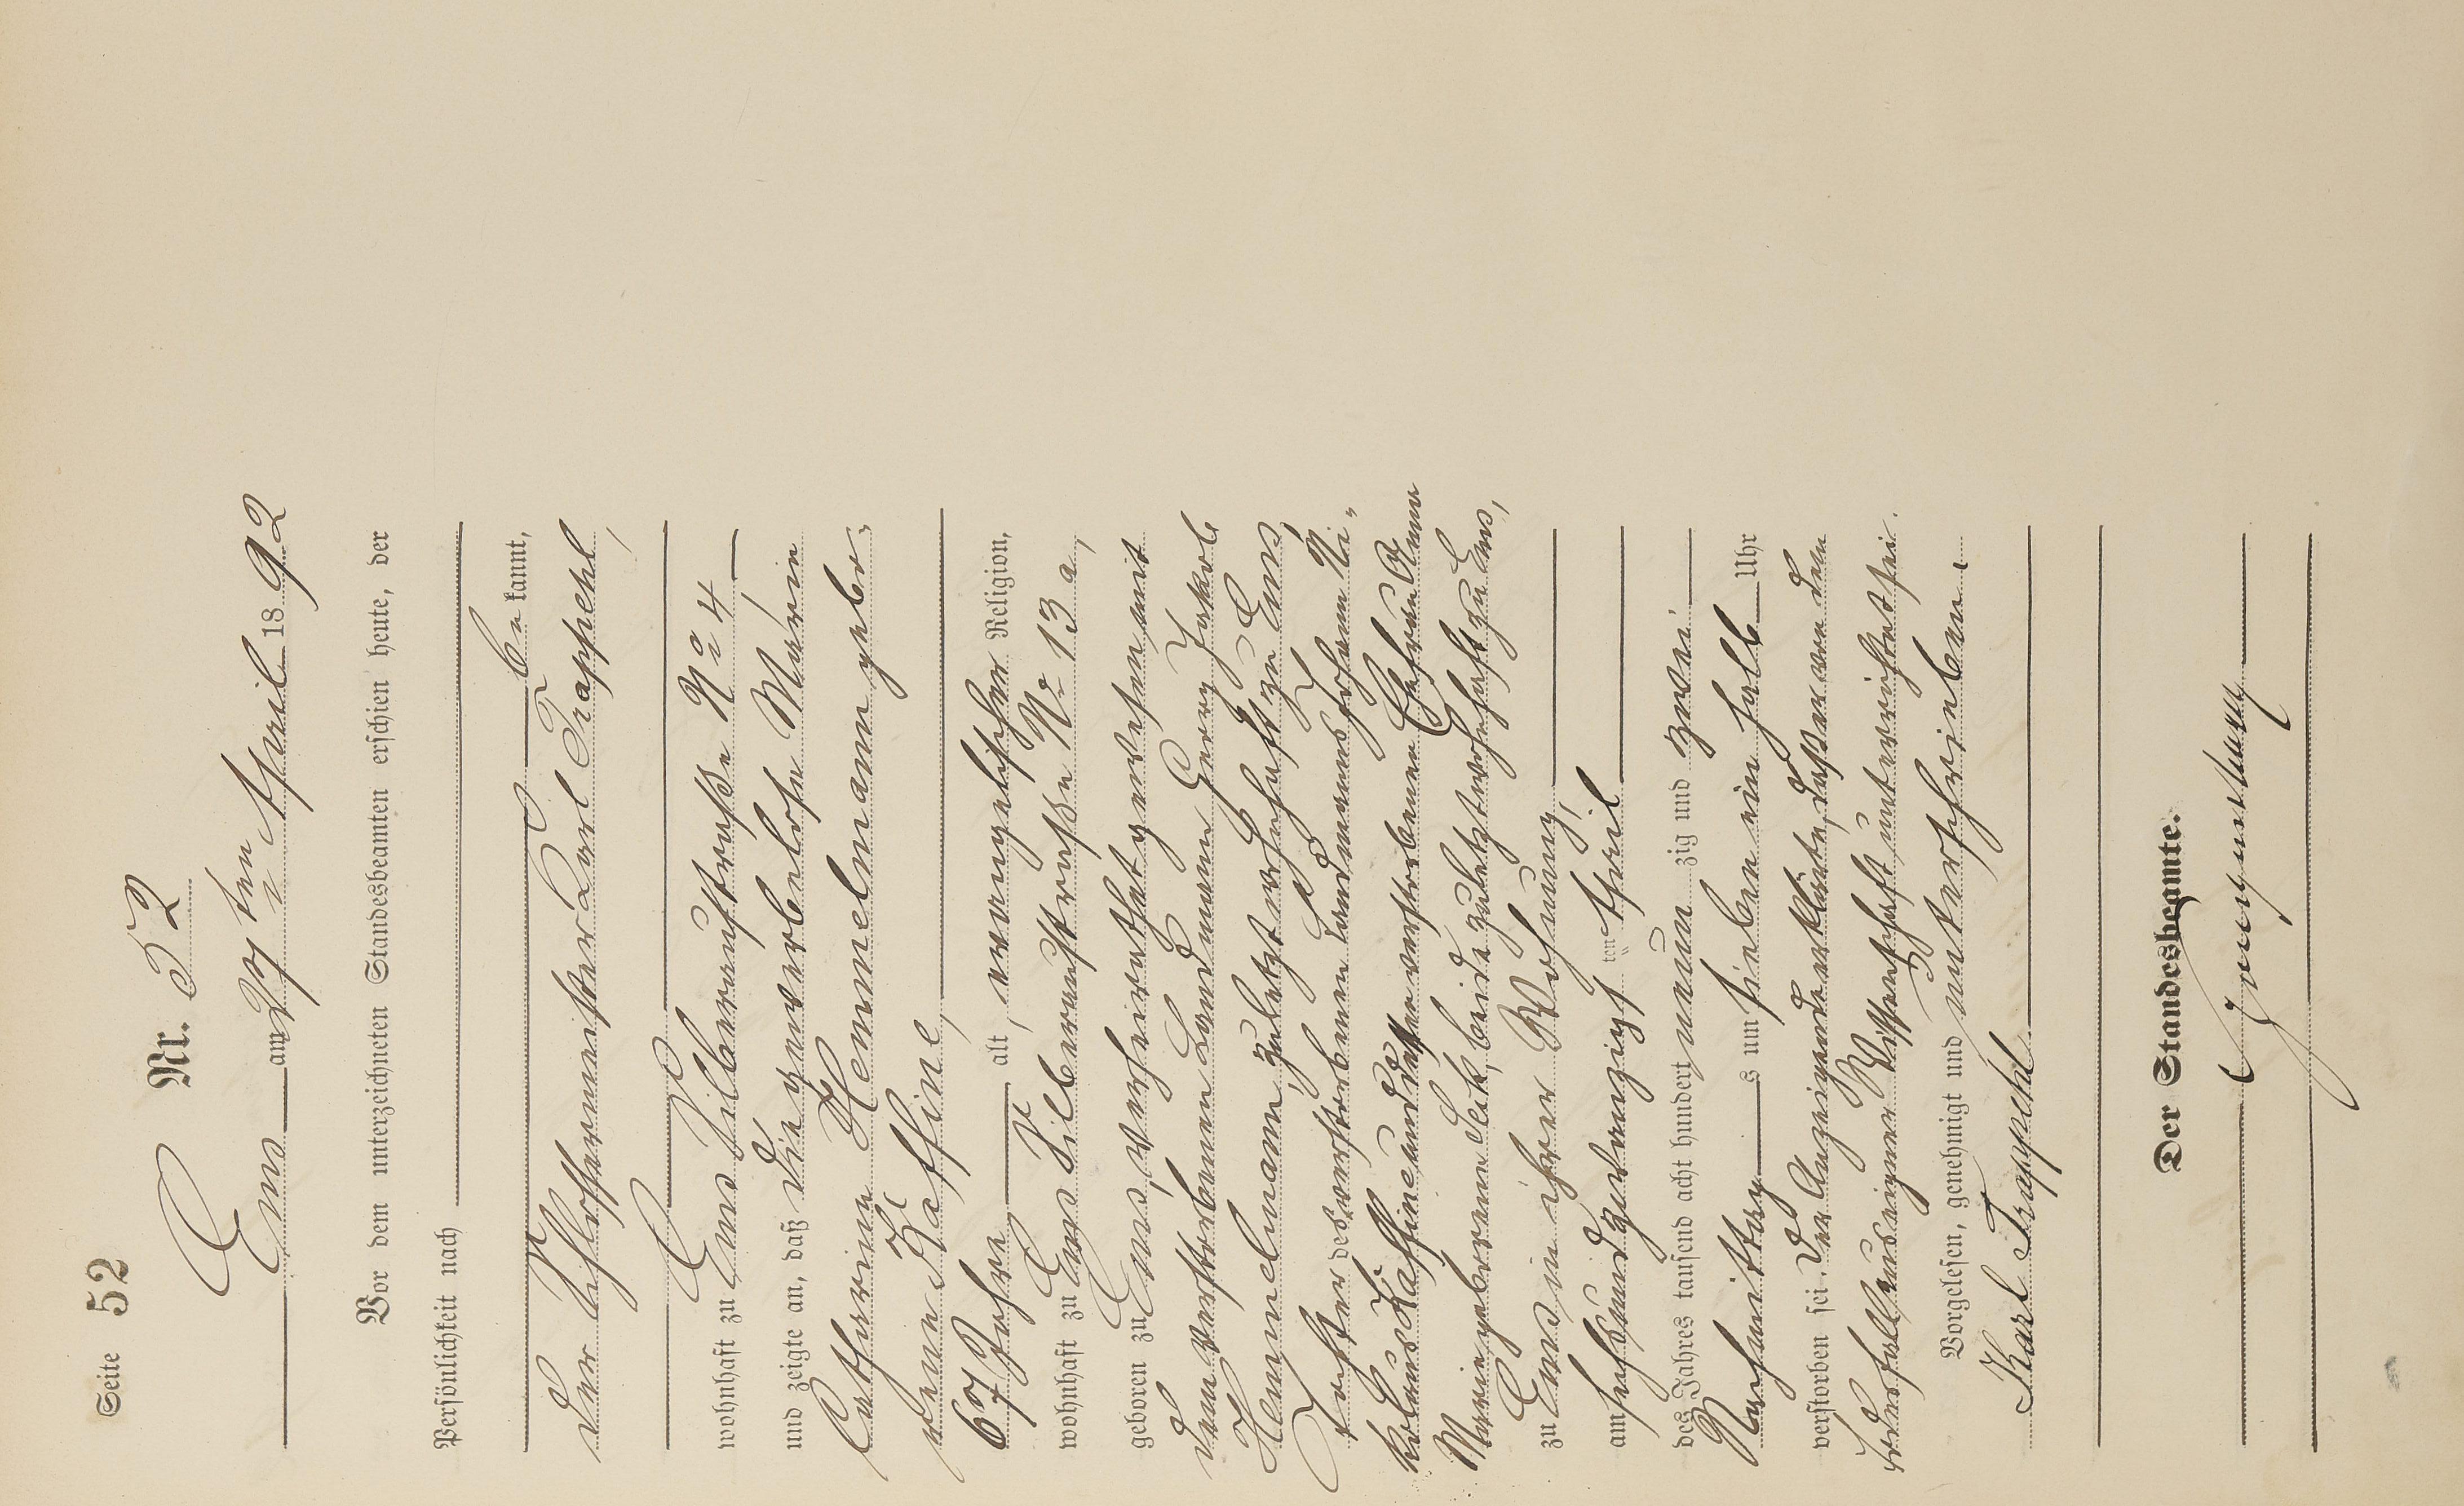 Seite 52
Nr. 52
Ems am 27ten April 1892
Vor dem unterzeichneten Standesbeamten erschien heute, der
Persönlichkeit nach
be kannt,
der Schlossermeister Karl Trappehl,
wohnhaft zu Ems Silberaustrasse No 4
und zeigte an, daß die gewerbelose Marie
Catharine Hemmelmann gebo-
rene Kaffine,
67 Jahre alt, evangelischer Religion,
wohnhaft zu Ems Silberaustrasse No 13 a,
geboren zu Ems, verheirathet gewesen mit
dem verstorbenen Landmann Georg Jakob
Hemmelmann, zuletzt wohnhaft zu Ems,
Tochter des verstorbenen Landmanns Johann Ni-
kolaus Kaffine und der verstorbenen Ehefrau Anna
Marie geborene beide zuletzt wohnhaft zu Ems,
zu Ems in ihrer Wohnung,
am sechsundzwanzigsten April
des Jahres tausend acht hundert neunzig und zwei
Nachmittags um sieben ein halb Uhr
verstorben sei. Der Anzeigende erklärte, daß er von dem
Sterbefall aus eigener Wissenschaft unterrichtet sei.
Vorgelesen, genehmigt und unterschrieben.
Karl Trappehl
Der Standesbeamte.